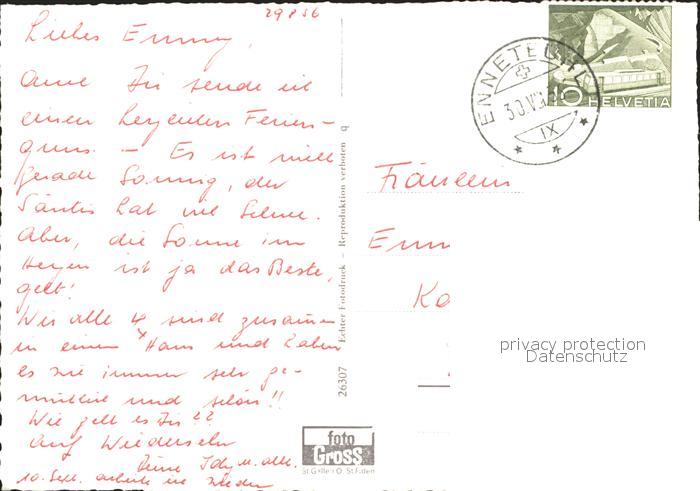 29 8 56
Liebes Emmy,
Dir sende ich
einen herzlichen Ferien-
gruss. — Es ist nicht
gerade Sonnig, der
Säntis hat viel Schnee.
Aber, die Sonne im
Herzen ist ja das Beste,
gelt!
Wir alle 4 sind zusammen
in einem Haus und haben
es immer sehr ge-
mütlich und schön!!
Wie geht es Dir??
Auf Wiedersehn
Deine Idy u. alle.
10. Sept. arbeite ich wieder
26307 Echter Fotodruck — Reproduktion verboten q
foto
Gross
St. Gallen O. St. Fiden
ENNETBÜHL
30.VIII
IX
10 HELVETIA
Fräulein
Emm
Ko
privacy protection
Datenschutz